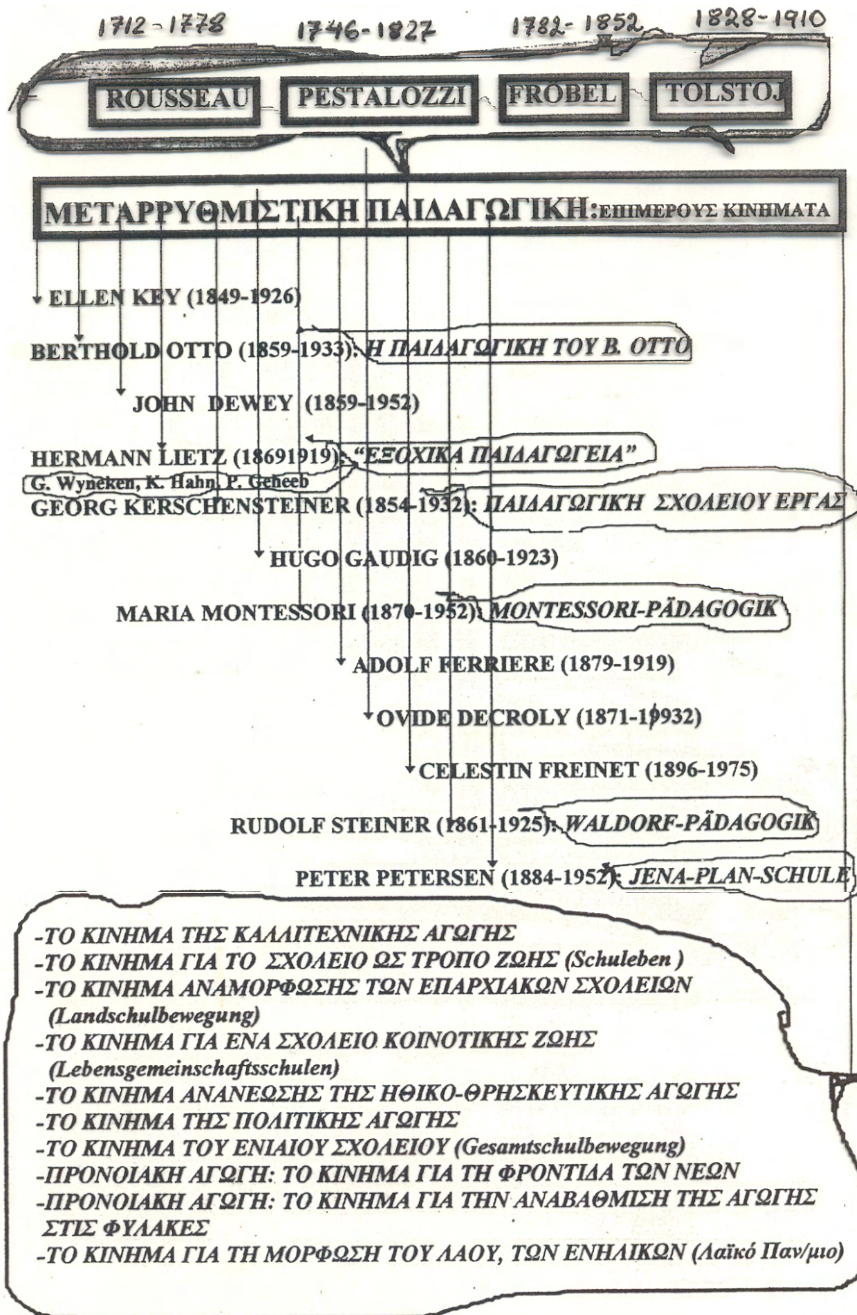 1712-1778 1746-1827 1782-1852 1828-1910
ROUSSEAU PESTALOZZI FRÖBEL TOLSTOJ
ΜΕΤΑΡΡΥΘΜΙΣΤΙΚΗ ΠΑΙΔΑΓΩΓΙΚΗ:ΕΠΙΜΕΡΟΥΣ ΚΙΝΗΜΑΤΑ
ELLEN KEY (1849-1926)
BERTHOLD OTTO (1859-1933): Η ΠΑΙΔΑΓΩΓΙΚΗ ΤΟΥ Β. ΟΤΤΟ
JOHN DEWEY (1859-1952)
HERMANN LIETZ (18691919): “ΕΞΟΧΙΚΑ ΠΑΙΔΑΓΩΓΕΙΑ”
G. Wyneken, K. Hahn, P. Geheeb
GEORG KERSCHENSTEINER (1854-1932): ΠΑΙΔΑΓΩΓΙΚΗ ΣΧΟΛΕΙΟΥ ΕΡΓΑΣ
HUGO GAUDIG (1860-1923)
MARIA MONTESSORI (1870-1952): MONTESSORI-PÄDAGOGIK
ADOLF FERRIERE (1879-1919)
OVIDE DECROLY (1871-19932)
CELESTIN FREINET (1896-1975)
RUDOLF STEINER (1861-1925): WALDORF-PÄDAGOGIK
PETER PETERSEN (1884-1952): JENA-PLAN-SCHULE
-ΤΟ ΚΙΝΗΜΑ ΤΗΣ ΚΑΛΛΙΤΕΧΝΙΚΗΣ ΑΓΩΓΗΣ
-ΤΟ ΚΙΝΗΜΑ ΓΙΑ ΤΟ ΣΧΟΛΕΙΟ ΩΣ ΤΡΟΠΟ ΖΩΗΣ (Schuleben )
-ΤΟ ΚΙΝΗΜΑ ΑΝΑΜΟΡΦΩΣΗΣ ΤΩΝ ΕΠΑΡΧΙΑΚΩΝ ΣΧΟΛΕΙΩΝ
(Landschulbewegung)
-ΤΟ ΚΙΝΗΜΑ ΓΙΑ ΕΝΑ ΣΧΟΛΕΙΟ ΚΟΙΝΟΤΙΚΗΣ ΖΩΗΣ
(Lebensgemeinschaftsschulen)
-ΤΟ ΚΙΝΗΜΑ ΑΝΑΝΕΩΣΗΣ ΤΗΣ ΗΘΙΚΟ-ΘΡΗΣΚΕΥΤΙΚΗΣ ΑΓΩΓΗΣ
-ΤΟ ΚΙΝΗΜΑ ΤΗΣ ΠΟΛΙΤΙΚΗΣ ΑΓΩΓΗΣ
-ΤΟ ΚΙΝΗΜΑ ΤΟΥ ΕΝΙΑΙΟΥ ΣΧΟΛΕΙΟΥ (Gesamtschulbewegung)
-ΠΡΟΝΟΙΑΚΗ ΑΓΩΓΗ: ΤΟ ΚΙΝΗΜΑ ΓΙΑ ΤΗ ΦΡΟΝΤΙΔΑ ΤΩΝ ΝΕΩΝ
-ΠΡΟΝΟΙΑΚΗ ΑΓΩΓΗ: ΤΟ ΚΙΝΗΜΑ ΓΙΑ ΤΗΝ ΑΝΑΒΑΘΜΙΣΗ ΤΗΣ ΑΓΩΓΗΣ
ΣΤΙΣ ΦΥΛΑΚΕΣ
-ΤΟ ΚΙΝΗΜΑ ΓΙΑ ΤΗ ΜΟΡΦΩΣΗ ΤΟΥ ΛΑΟΥ, ΤΩΝ ΕΝΗΛΙΚΩΝ (Λαϊκό Παν/μιο)